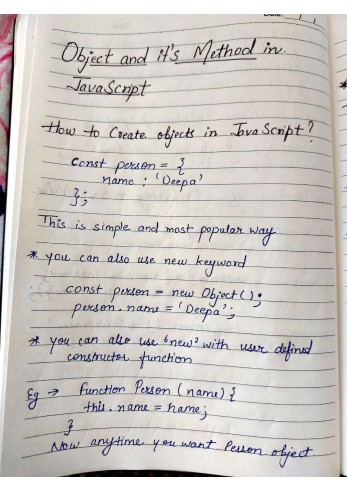 Date:
Object and it's Method in
JavaScript
How to Create objects in JavaScript?
const person = {
name : 'Deepa'
};
This is simple and most popular way
* you can also use new keyword
const person = new Object();
person.name = 'Deepa';
* you can also use 'new' with user defined
constructor function
Eg → function Person (name) {
this.name = name;
}
Now anytime you want Person object